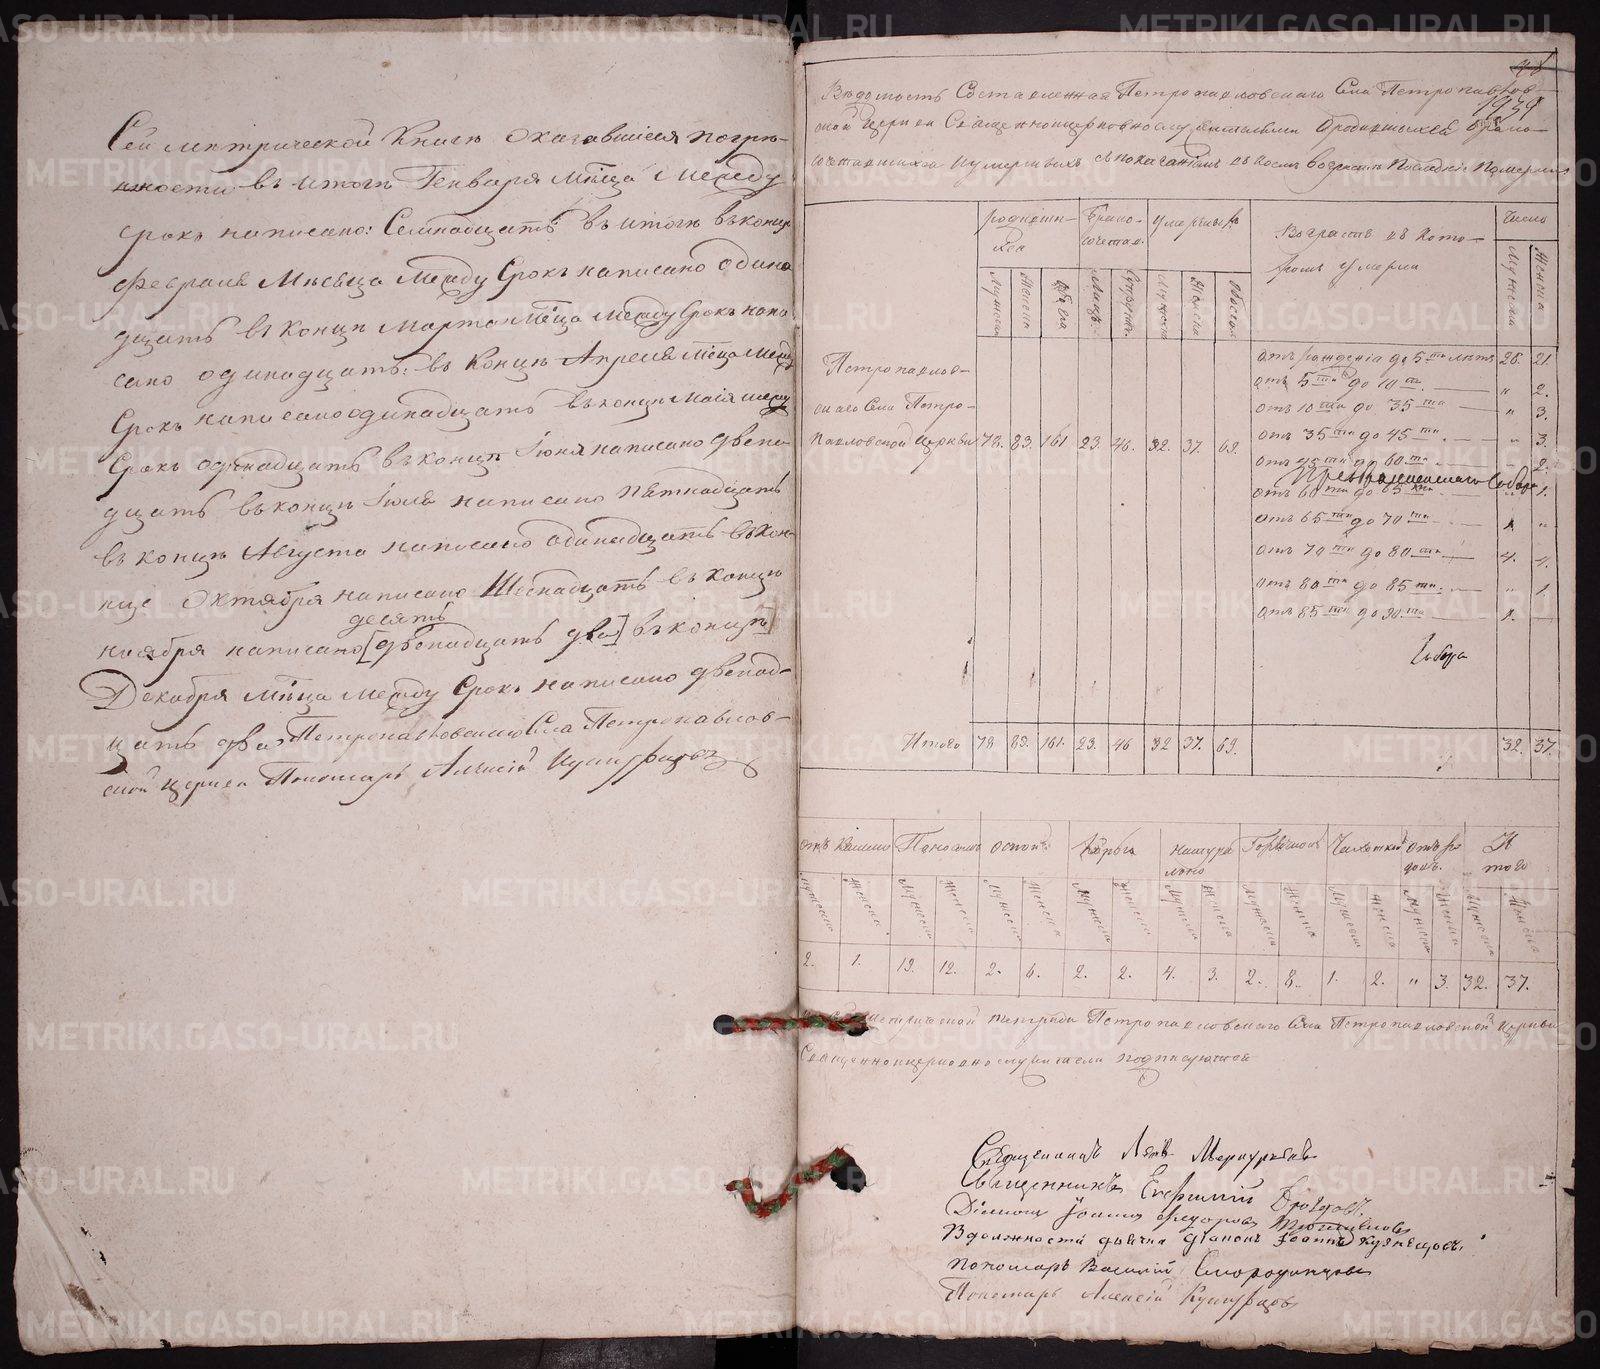 Сей метрической Книги оказавшіяся погрѣ-
шности въ итогѣ Генваря мѣца между
срокъ написано: Семнадцать въ итогѣ въ концѣ
февраля Мѣсяца между срокъ написано одина
дцать въ концѣ марта мѣца между срокъ напи
сано одинадцать: въ концѣ Апреля мѣца между
Срокъ написано одинадцать въ концѣ маія между
Срокъ одинадцать въ концѣ Іюня написано двена
дцать въ концѣ Іюля написано пятнадцать
въ концѣ Августа написано одинадцать въ кон-
це Октября написано Шеснадцать въ концѣ
десять
ноября написано [двенадцать два] въ концѣ]
Декабря мѣца между Срокъ написано двенад-
цать два Петропавловскаго Села Петропавлов-
ской церкви Пономарь Алексій
Ведомость Составленная Петропавловскаго Села Петропавлов-
ской Церкви Священноцерковнослужителями о родившихся брако-
сочетавшихся и умершихъ съ показаніемъ въ коемъ возрасте последніе Померли
родивши- Брако- умершихъ Возрастъ въ кото- Число
хся сочетав. ромъ умерли
Мужеска Женска Обоего Мужеска Женска Обоего Мужеска Женска
Петропавлов-
скаго Села Петро-
Павловской Церкви 78. 83. 161 23. 46. 32. 37. 69.
отъ рожденія до 5ти летъ 26. 21.
отъ 5ти до 10ти " 2.
отъ 10ти до 35ти " 3.
отъ 35ти до 45ти " 3.
отъ 45ти до 60ти 2.
отъ 60ти до 65ти " 1.
отъ 65ти до 70ти 1. "
отъ 70ти до 80ти 4. 4.
отъ 80ти до 85ти " 1.
отъ 85ти до 90ти 1.
Итого 78 83. 161. 23. 46 32 37. 69. 32. 37.
отъ Кашлю Поносомъ оспой натура Горячкой Чахоткой отъ ро И
льно довъ. того
Мужеска Женска Мужеска Женска Мужеска Женска Мужеска Женска Мужеска Женска Мужеска Женска Мужеска Женска Мужеска Женска Мужеска Женска
2. 1. 19. 12. 2. 6. 2. 2. 4. 3. 2. 8. 1. 2. " 3. 32. 37.
Петропавловскаго Села Петропавловской Церкви
Священноцерковнослужители подписуются
Священникъ Левъ Меркурьевъ
Священникъ Евфимій
Діаконъ Іоаннъ Федоровъ
В должности дьячка діаконъ Іоаннъ Кузнецовъ.
Пономарь Василій Смородинцовъ
Пономарь Алексій
METRIKI.GASO-URAL.RU